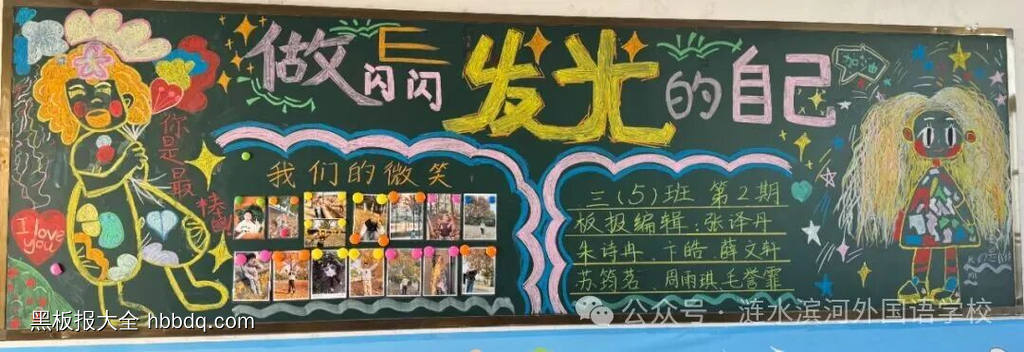 做闪闪发光的自己
你是最棒
I love you
加油
我们的微笑
三(5)班 第2期
板报编辑:张译丹
朱诗冉、卞皓 薛文轩
苏筠茗 周雨琪、毛誉霏
黑板报大全 hbbdq.com
公众号·涟水滨河外国语学校